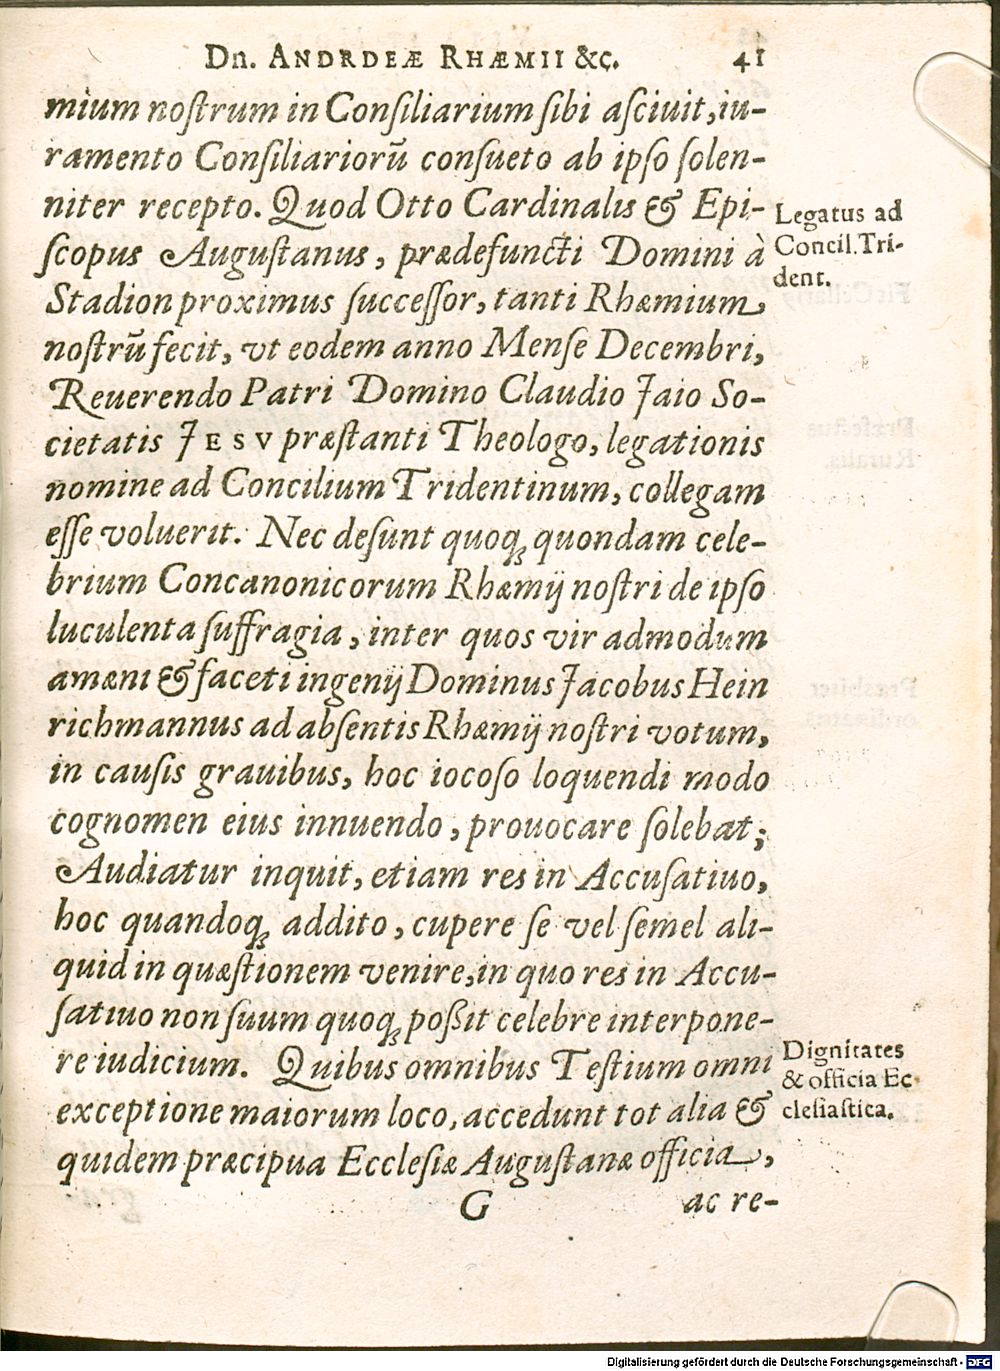 Dn. ANDRDEÆ RHÆMII &c. 41
mium nostrum in Consiliarium sibi asciuit, iu-
ramento Consiliariorū consueto ab ipso solen-
niter recepto. Quod Otto Cardinalis & Epi-
scopus Augustanus, prædefuncti Domini à
Stadion proximus successor, tanti Rhæmium
nostrū fecit, vt eodem anno Mense Decembri,
Reuerendo Patri Domino Claudio Jaio So-
cietatis JESV præstanti Theologo, legationis
nomine ad Concilium Tridentinum, collegam
esse voluerit. Nec desunt quoq; quondam cele-
brium Concanonicorum Rhæmij nostri de ipso
luculenta suffragia, inter quos vir admodum
amæni & faceti ingenij Dominus Jacobus Hein
richmannus ad absentis Rhæmij nostri votum,
in causis grauibus, hoc iocoso loquendi modo
cognomen eius innuendo, prouocare solebat;
Audiatur inquit, etiam res in Accusatiuo,
hoc quandoq; addito, cupere se vel semel ali-
quid in quæstionem venire, in quo res in Accu-
satiuo non suum quoq; poßit celebre interpone-
re iudicium. Quibus omnibus Testium omni
exceptione maiorum loco, accedunt tot alia &
quidem præcipua Ecclesiæ Augustanæ officia,
G ac re-
Legatus ad
Concil. Tri-
dent.
Dignitates
& officia Ec
clesiastica.
Digitalisierung gefördert durch die Deutsche Forschungsgemeinschaft - DFG